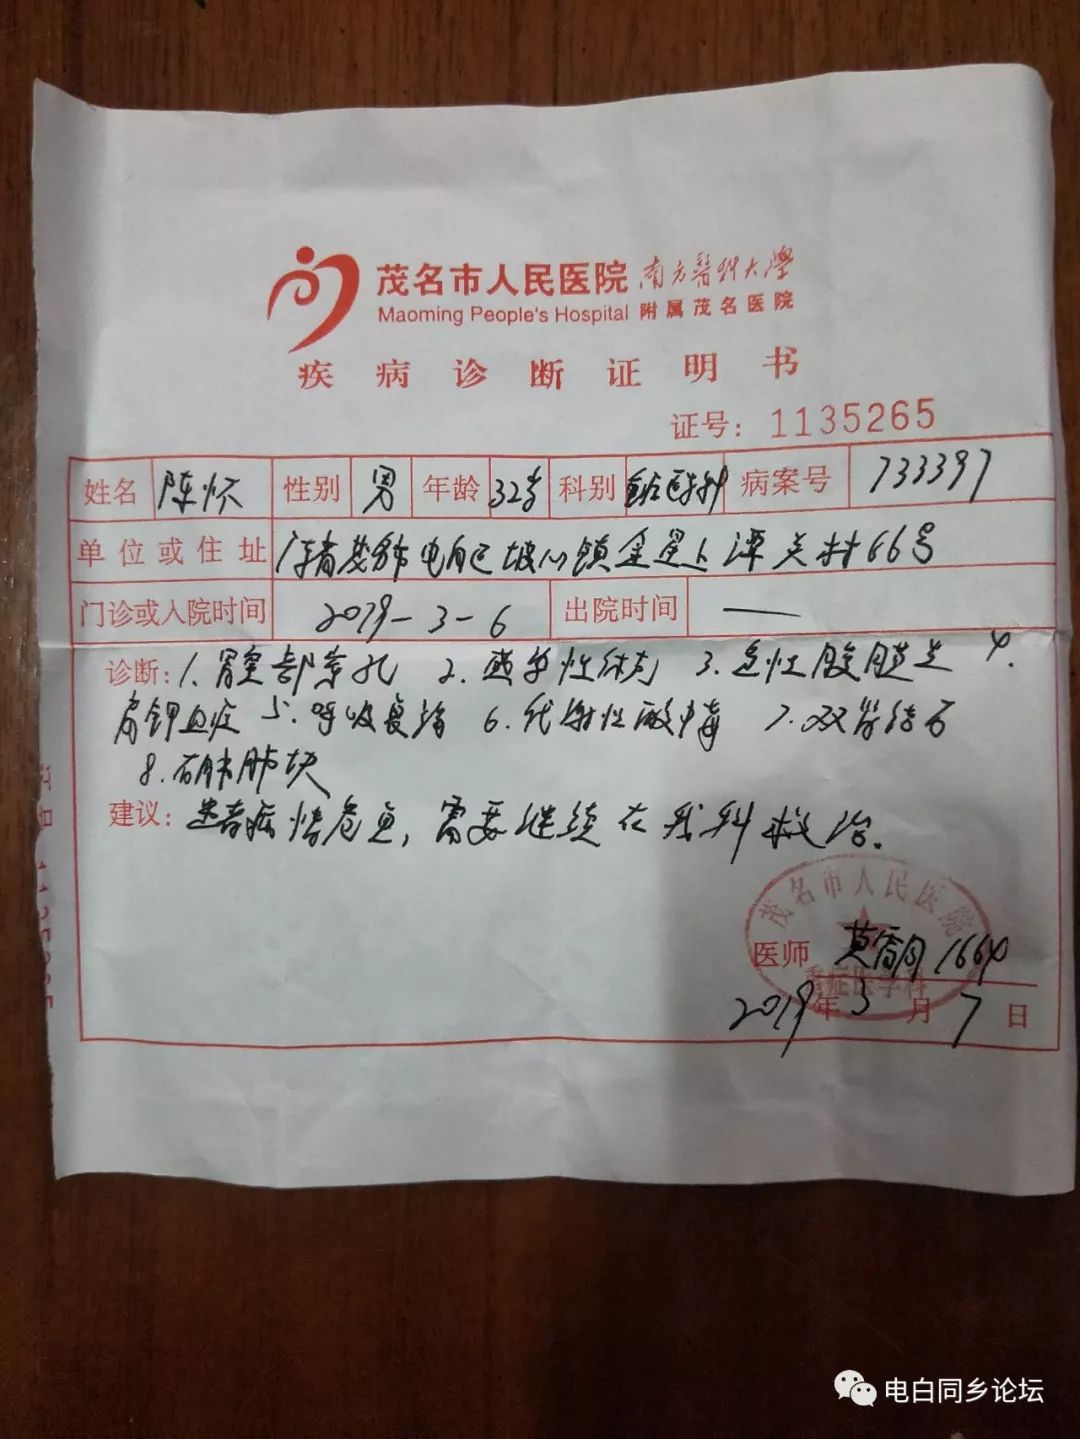 茂名市人民医院 南方醫科大學
Maoming People's Hospital 附属茂名医院
疾病诊断证明书
证号: 1135265
姓名 陈怀 性别 男 年龄 32岁 科别 重症医学科 病案号 733397
单位或住址 广东省茂名市电白区坡心镇金星上潭关村66号
门诊或入院时间 2019-3-6 出院时间 ——
诊断: 1. 胃窦部穿孔 2. 感染性休克 3. 急性腹膜炎 4.
高钾血症 5. 呼吸衰竭 6. 代谢性酸中毒 7. 双肾结石
8. 右肺肿块
建议: 患者病情危重, 需要继续在我科救治.
茂名市人民医院
医师 1664
重症医学科
2019年3月7日
电白同乡论坛